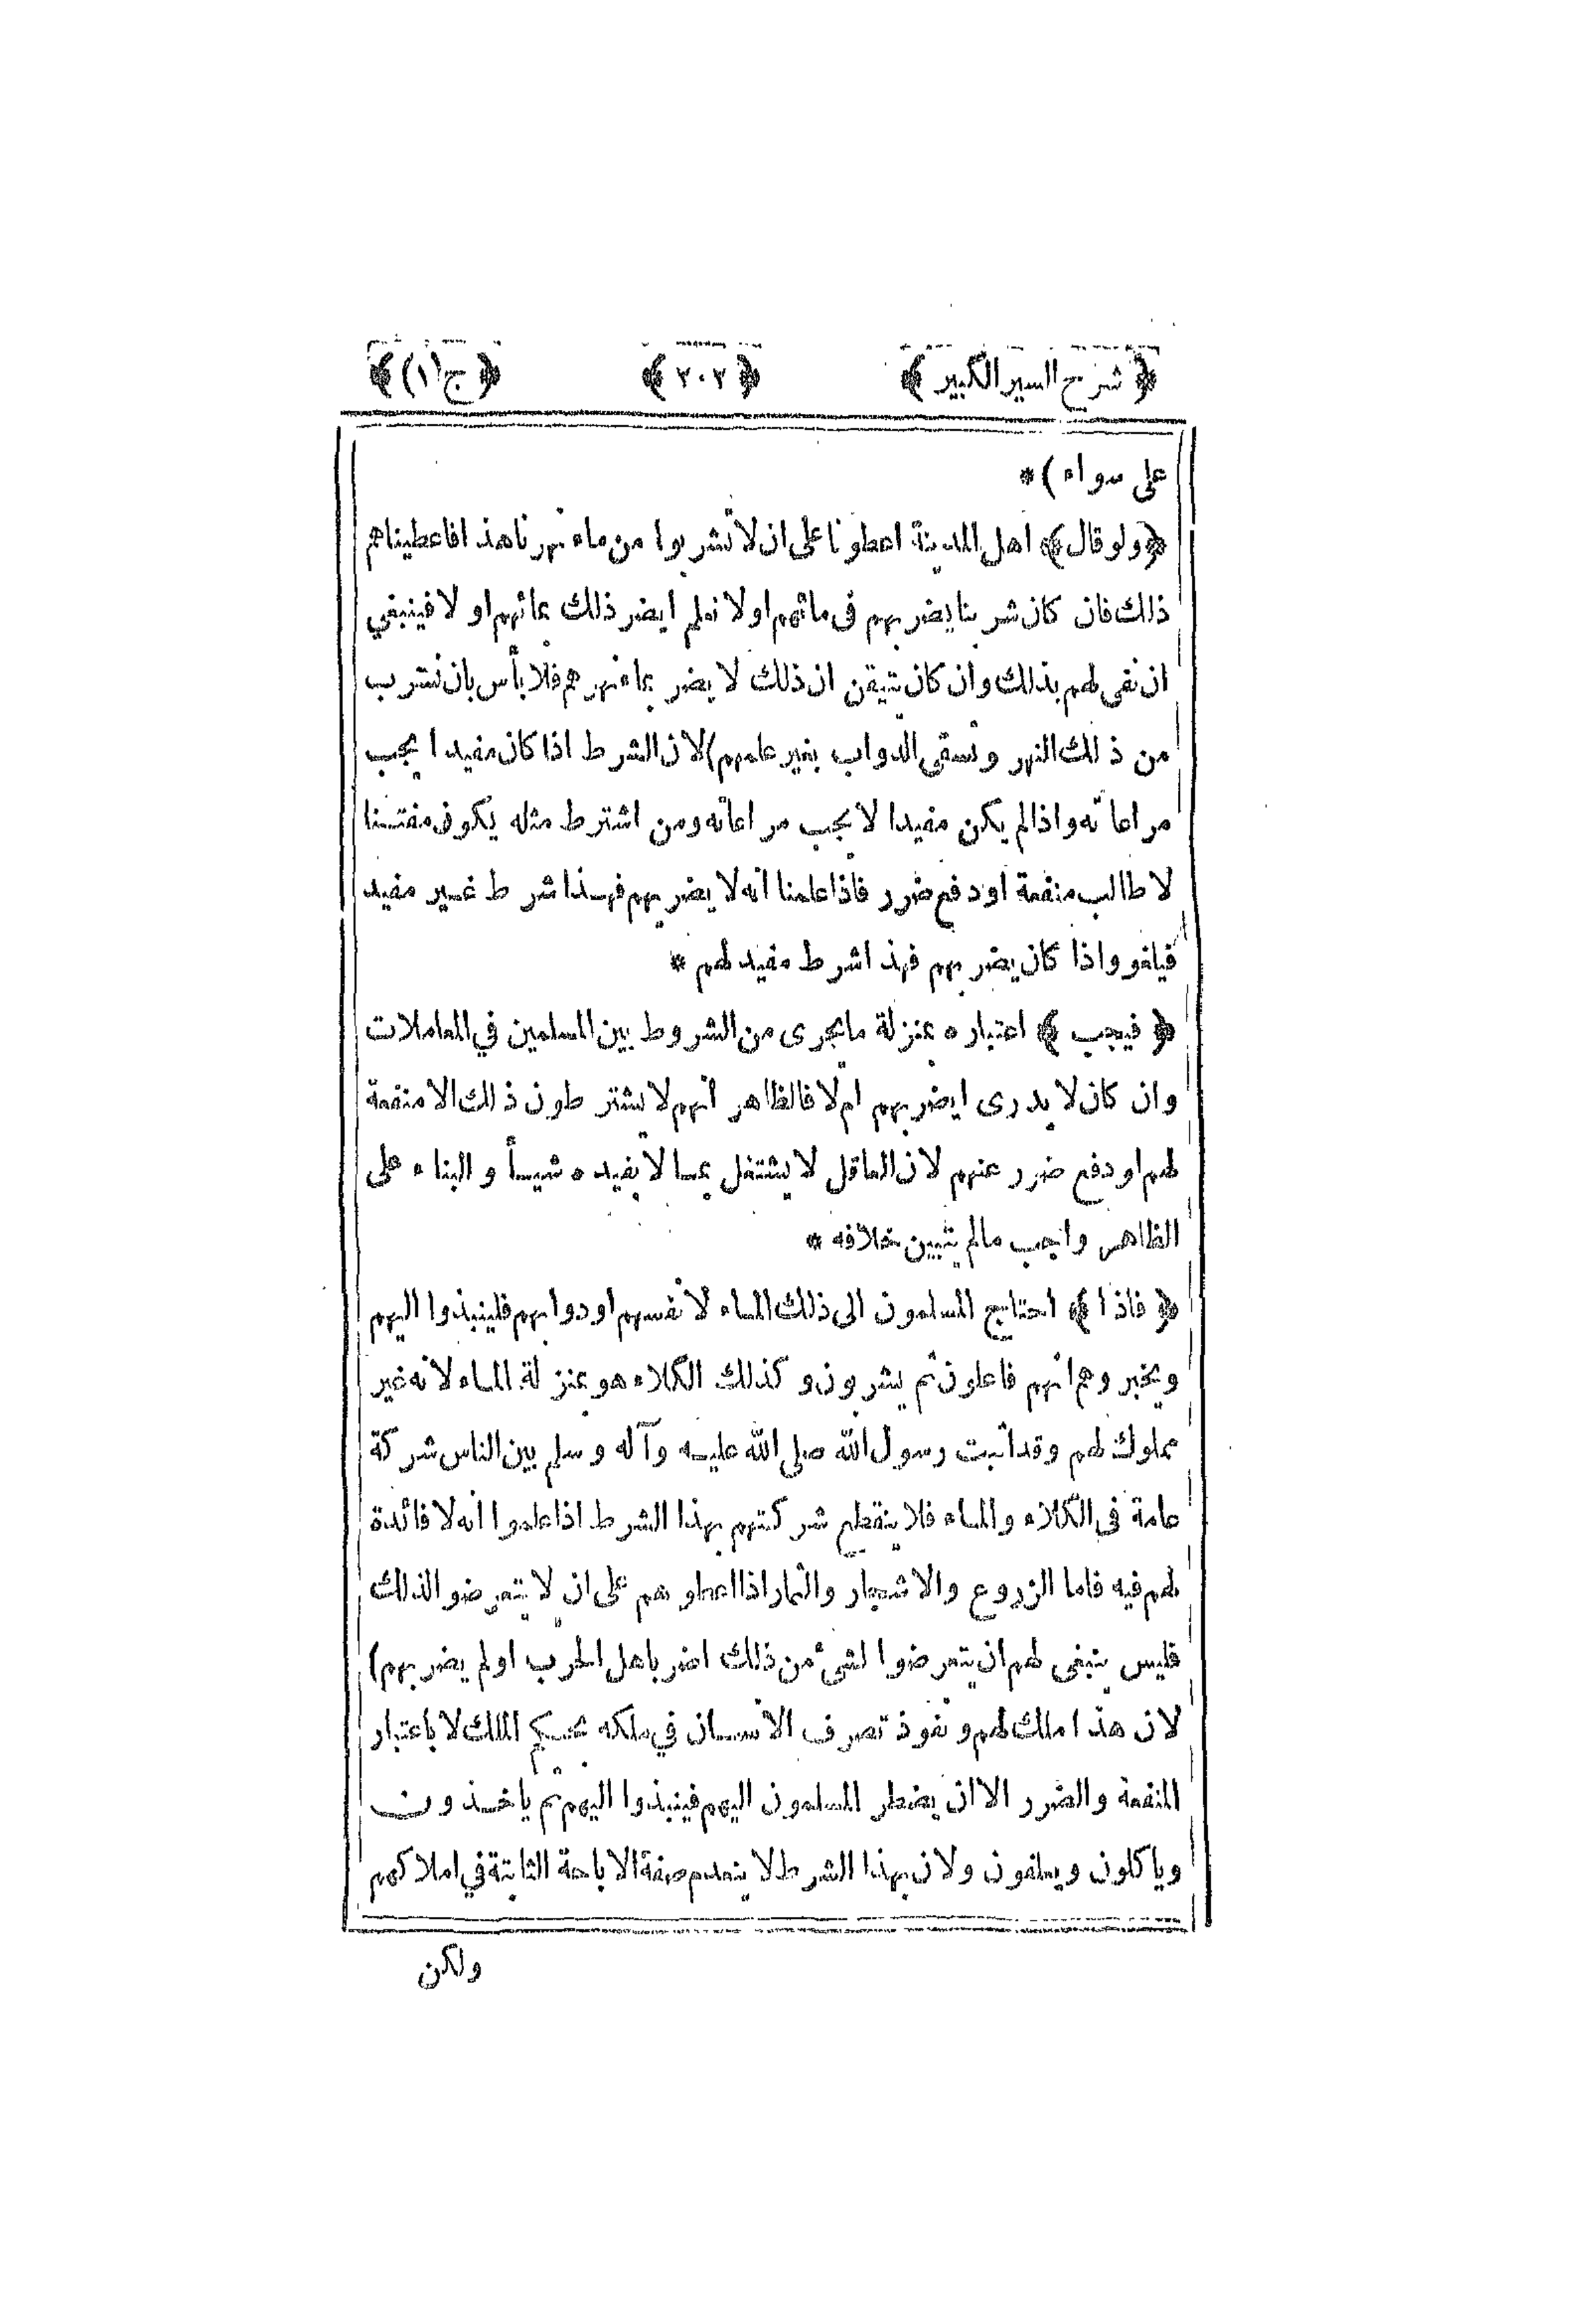 ﴿ شرح السير الكبير ﴾ ﴿ ٢٠٢ ﴾ ﴿ ج (١) ﴾
على سواء ) *
﴿ ولو قال ﴾ اهل المدينة اعطونا على ان لا تشربوا من ماء نهرنا هذا فاعطيناهم
ذلك فان كان شربنا يضر بهم فى مائهم اولا نعلم ايضر ذلك بمائهم او لا فينبغي
ان نفى لهم بذلك وان كان نتيقن ان ذلك لا يضر بماء نهرهم فلا بأس بان نشرب
من ذلك النهر ونسقى الدواب بغير علمهم) لان الشرط اذا كان مفيدا يجب
مراعاته واذا لم يكن مفيدا لا يجب مراعاته ومن اشترط مثله يكون متعنتا
لا طالب منفعة او دفع ضرر فاذا علمنا انه لا يضر بهم فهذا شرط غير مفيد
فيلغو واذا كان يضر بهم فهذا شرط مفيد لهم *
﴿ فيجب ﴾ اعتباره بمنزلة ما يجرى من الشروط بين المسلمين في المعاملات
وان كان لا يدرى ايضر بهم ام لا فالظاهر انهم لا يشترطون ذلك الا منفعة
لهم او دفع ضرر عنهم لان العاقل لا يشتغل بما لا يفيده شيأ والبناء على
الظاهر واجب مالم يتبين خلافه *
﴿ فاذا ﴾ احتاج المسلمون الى ذلك الماء لا نفسهم او دوابهم فلينبذوا اليهم
ويخبروهم انهم فاعلون ثم يشربون وكذلك الكلاء هو بمنزلة الماء لانه غير
مملوك لهم وقد اثبت رسول الله صلى الله عليه وآله وسلم بين الناس شركة
عامة فى الكلاء والماء فلا ينقطع شركتهم بهذا الشرط اذا علموا انه لا فائدة
لهم فيه فاما الزروع والاشجار والثمار اذا اعطوهم على ان لا يتعرضوا لذلك
فليس ينبغى لهم ان يتعرضوا لشئ من ذلك اضر باهل الحرب او لم يضر بهم)
لان هذا ملك لهم ونفوذ تصرف الانسان في ملكه بحكم الملك لا باعتبار
المنفعة والضرر الا ان يضطر المسلمون اليهم فينبذوا اليهم ثم ياخذون
وياكلون ويعلفون ولان بهذا الشرط لا ينعدم صفة الاباحة الثابتة في املاكهم
ولكن